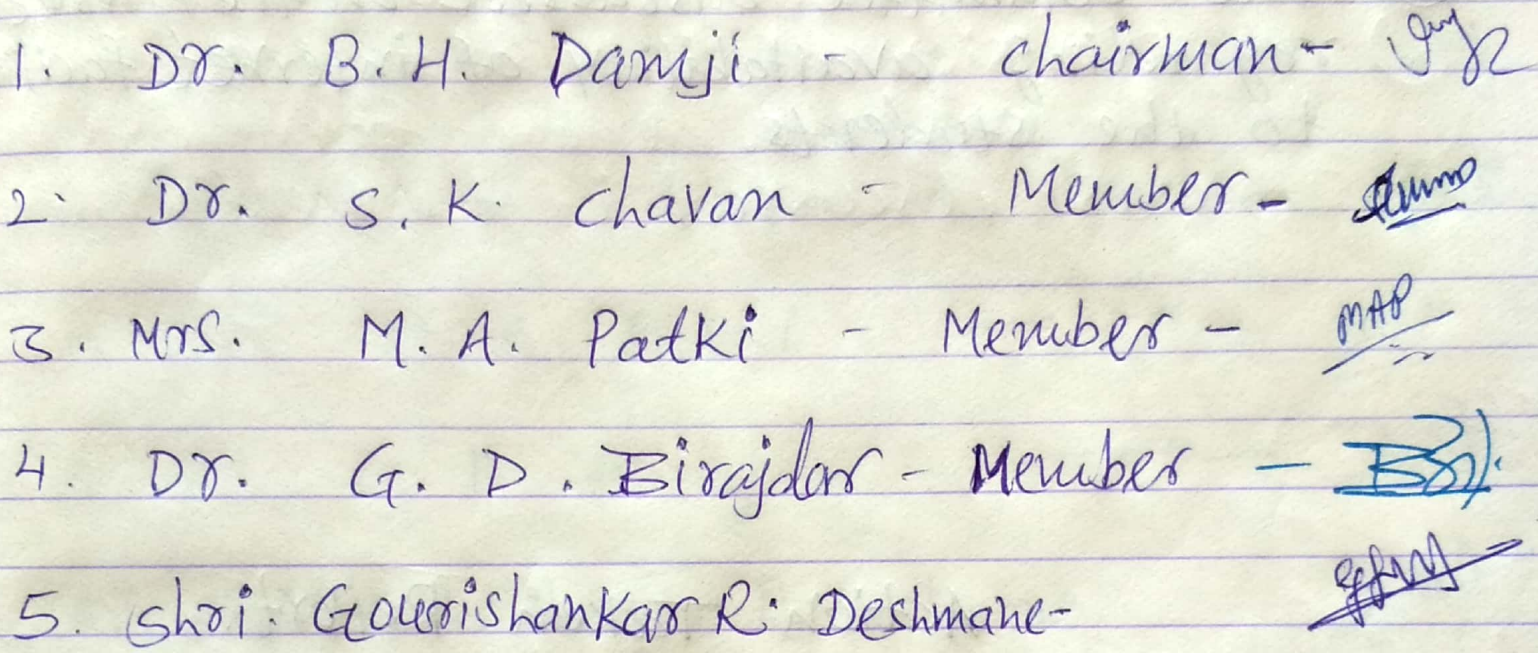 1. Dr. B. H. Damji - Chairman -
2. Dr. S. K. Chavan - Member -
3. Mrs. M. A. Patki - Member - MAP
4. Dr. G. D. Birajdar - Member -
5. Shri. Gourishankar R. Deshmane -